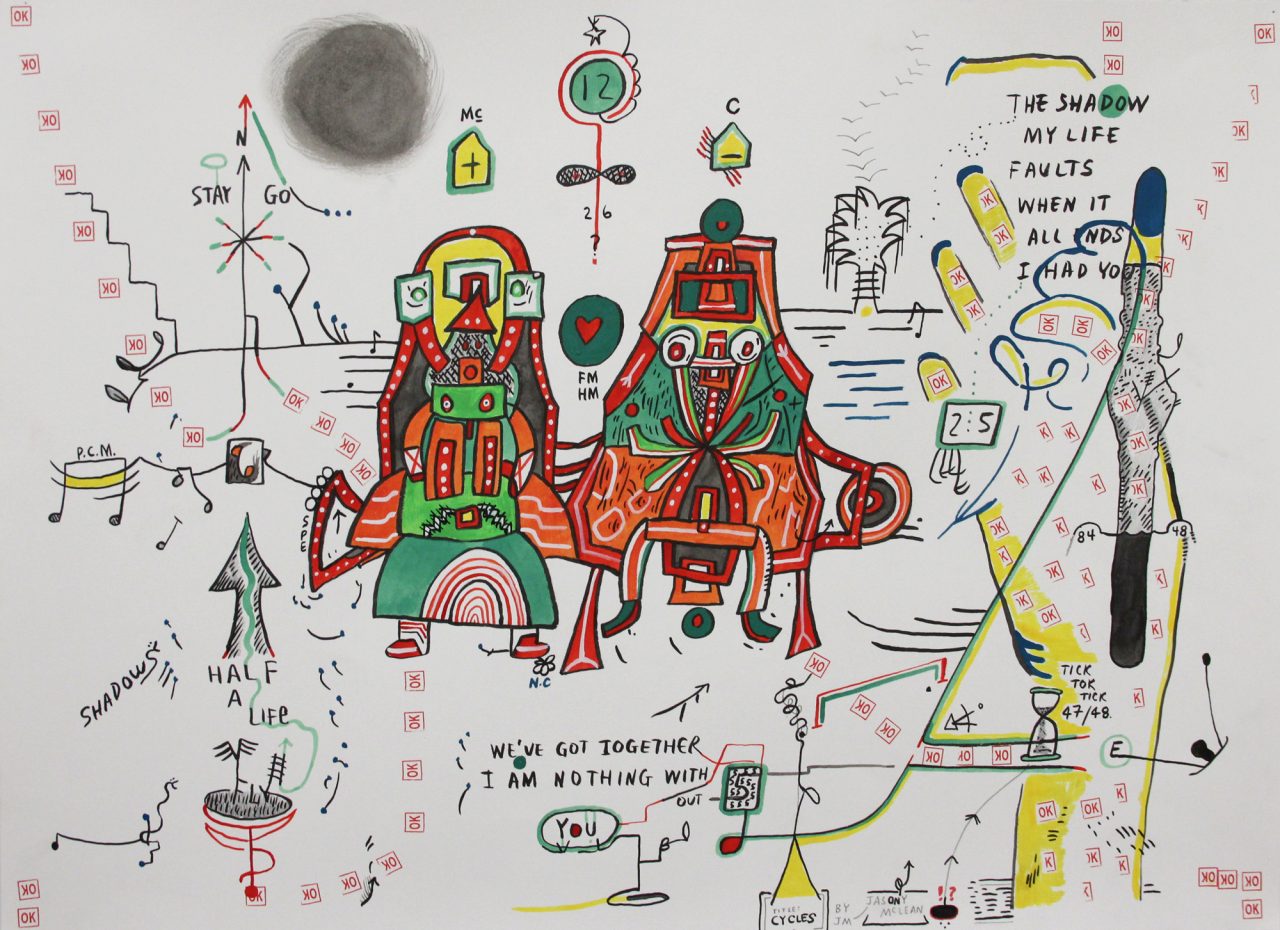 OK
N
STAY GO
Mc
+
12
26
?
C
THE SHADOW
MY LIFE
FAULTS
WHEN IT
ALL ENDS
I HAD YOU
FM
HM
2:5
P.C.M.
SPE
84
48
SHADOWS
HALF
A
LIFE
N.C
TICK
TOK
TICK
47/48.
E
WE'VE GOT TOGETHER
I AM NOTHING WITH
OUT
YOU
TITLE:
CYCLES
BY
JM
JASON
MCLEAN
!?